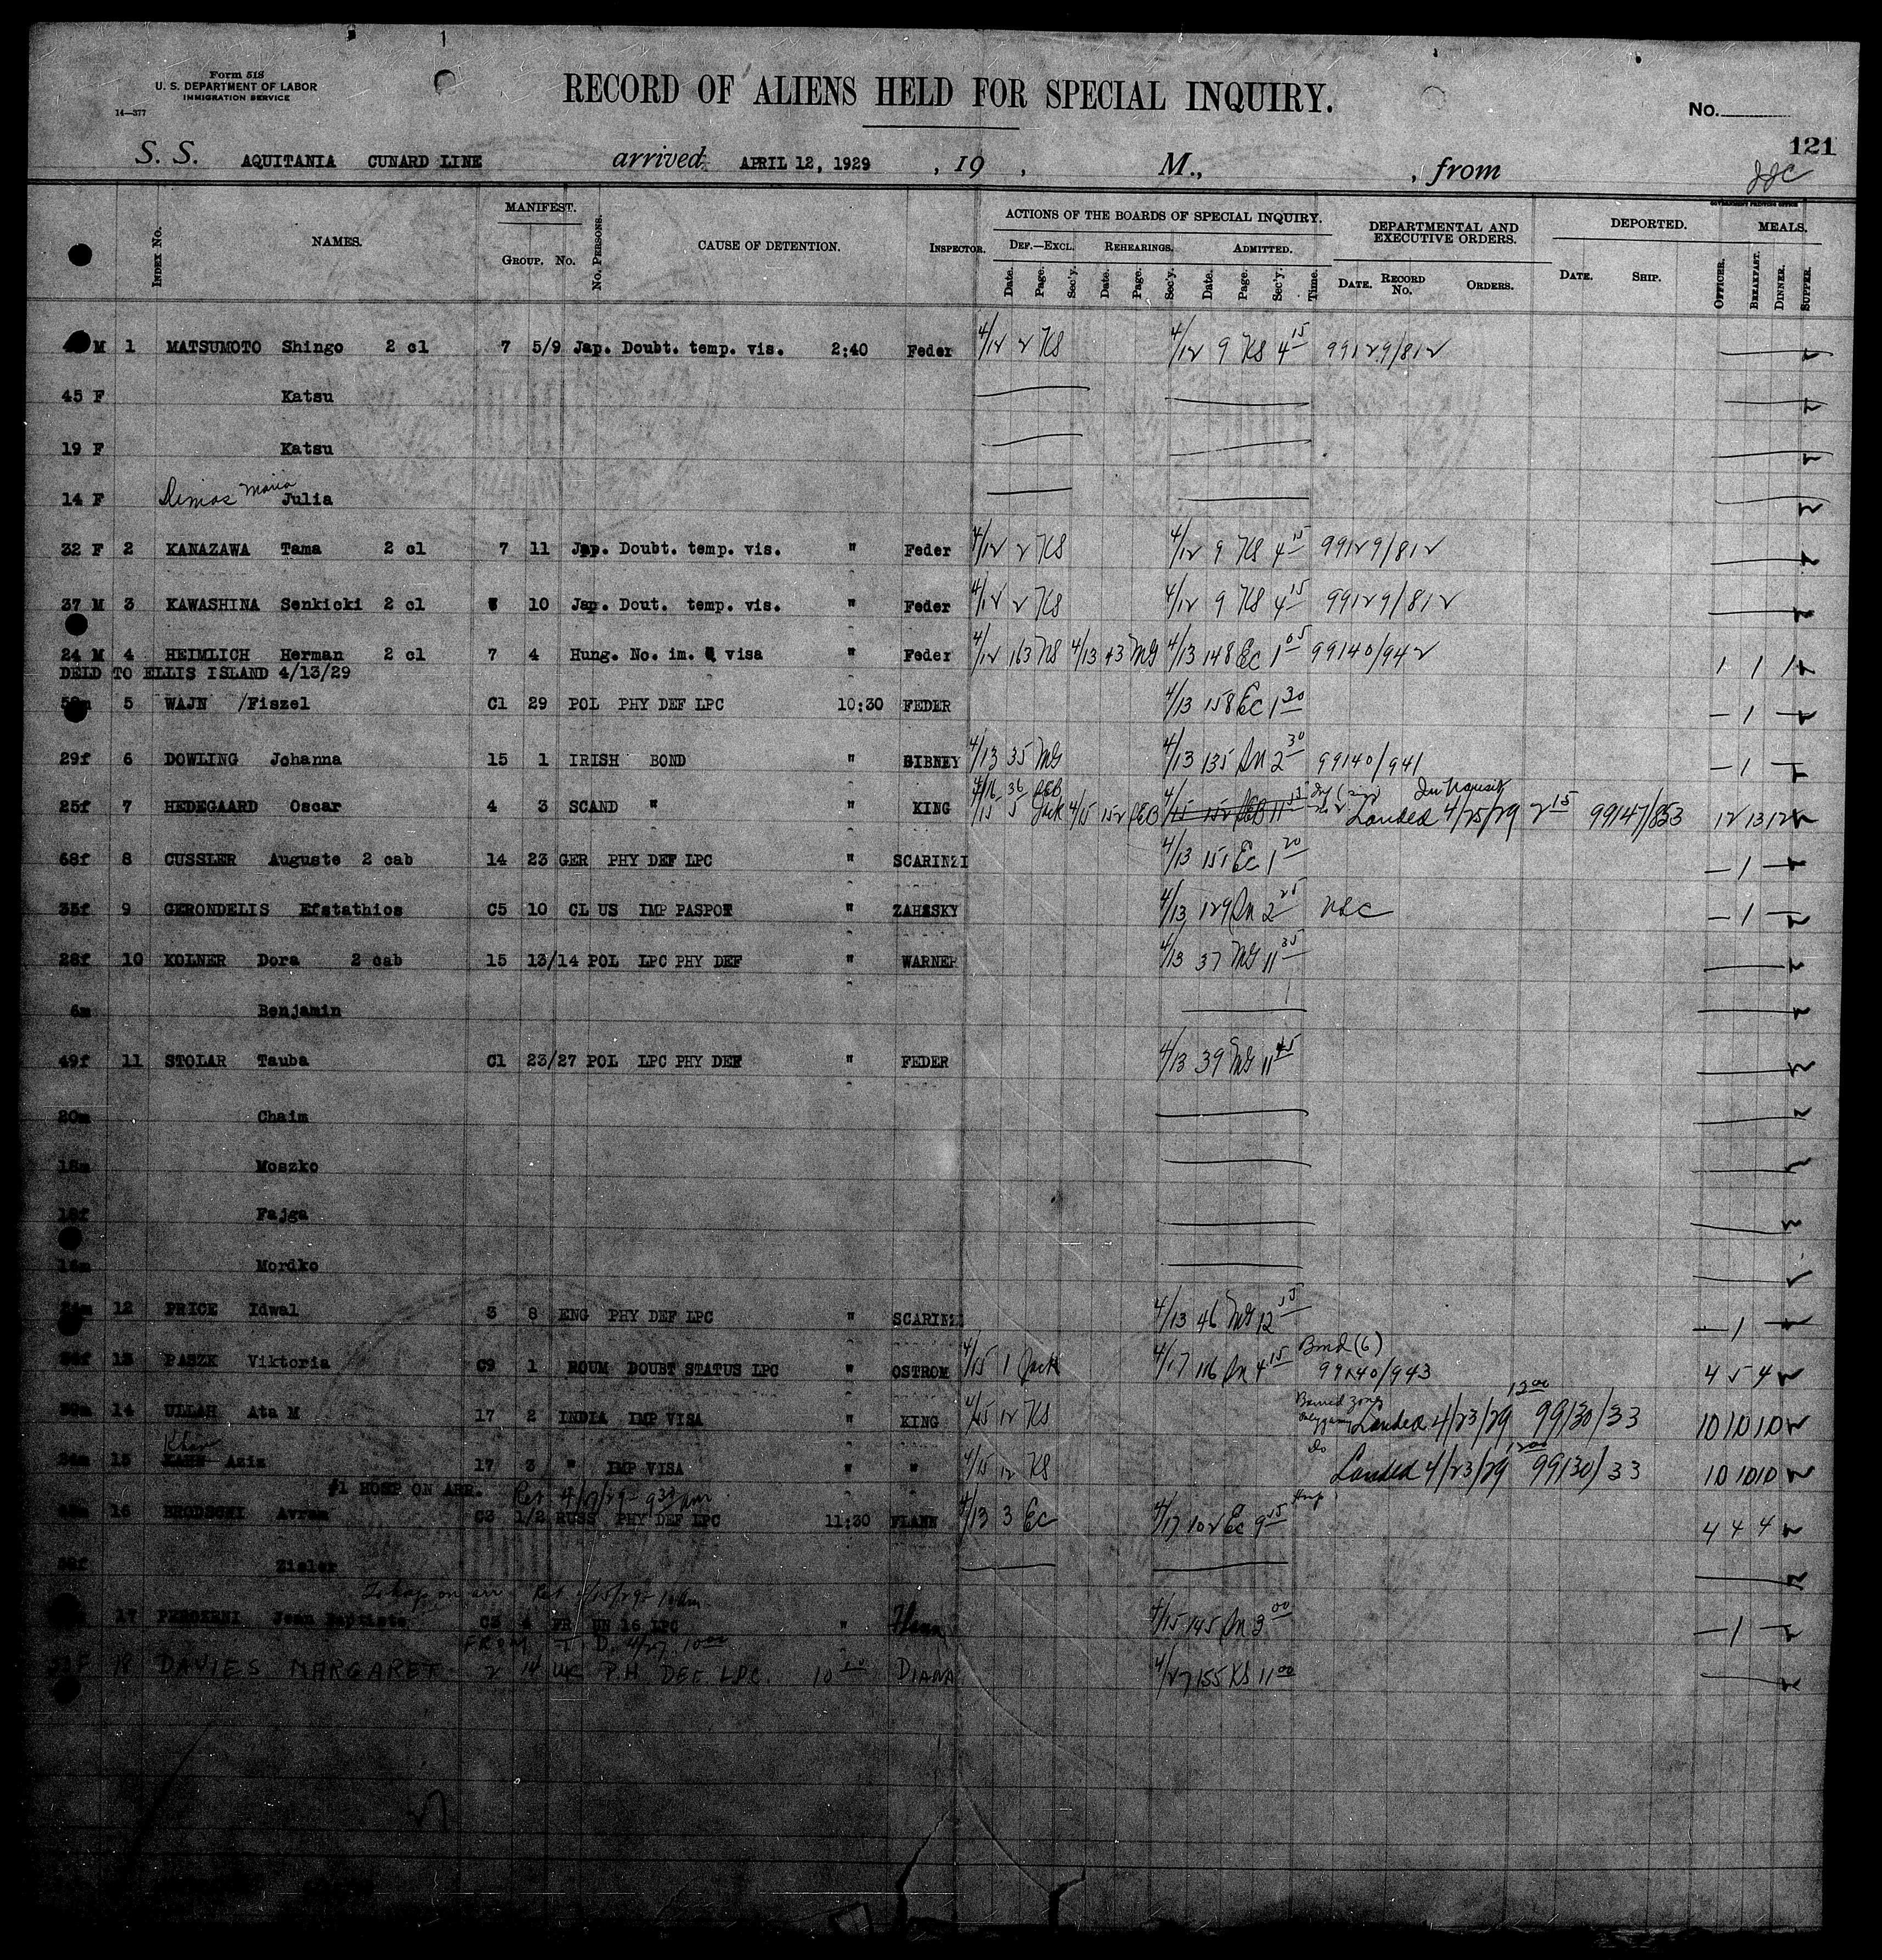 Form 518
U. S. DEPARTMENT OF LABOR
IMMIGRATION SERVICE
14—377
RECORD OF ALIENS HELD FOR SPECIAL INQUIRY.
No.
121
S. S. AQUITANIA CUNARD LINE arrived APRIL 12, 1929 , 19 , M., , from
GOVERNMENT PRINTING OFFICE
Index No. NAMES. MANIFEST. Group. No. No. Persons. CAUSE OF DETENTION. Inspector. ACTIONS OF THE BOARDS OF SPECIAL INQUIRY. Def.—Excl. Rehearings. Admitted. Date. Page. Sec'y. Date. Page. Sec'y. Date. Page. Sec'y. Time. DEPARTMENTAL AND EXECUTIVE ORDERS. Date. Record No. Orders. DEPORTED. Date. Ship. MEALS. Officer. Breakfast. Dinner. Supper.
M 1 MATSUMOTO Shingo 2 cl 7 5/9 Jap. Doubt. temp. vis. 2:40 Feder 4/12 2 KS 4/12 9 KS 4 15 99129/812
45 F Katsu
19 F Katsu
14 F Maria Julia
32 F 2 KANAZAWA Tama 2 cl 7 11 Jap. Doubt. temp. vis. " Feder 4/12 2 KS 4/12 9 KS 4 15 99129/812
37 M 3 KAWASHINA Senkicki 2 cl 10 Jap. Dout. temp. vis. " Feder 4/12 2 KS 4/12 9 KS 4 15 99129/812
24 M 4 HEIMLICH Herman 2 cl 7 4 Hung. No. im. visa " Feder 4/12 163 NS 4/13 43 MG 4/13 148 Ec 1 05 99140/942 1 1 1
DELD TO ELLIS ISLAND 4/13/29
5 WAJN /Fiszel C1 29 POL PHY DEF LPC 10:30 FEDER 4/13 158 Ec 1 30 — 1 —
29f 6 DOWLING Johanna 15 1 IRISH BOND " GIBNEY 4/13 35 MG 4/13 135 Sn 2 30 99140/941 — 1 —
4/16 36 REB In transit
25f 7 HEDEGAARD Oscar 4 3 SCAND " " KING 4/15 5 Jack 4/15 152 REB 4/15 152 REB 11 Landed 4/25/29 2 15 99147/853 12 13 12
68f 8 CUSSLER Auguste 2 cab 14 23 GER PHY DEF LPC " SCARINZI 4/13 151 Ec 1 20 — 1 —
35f 9 GERONDELIS Efstathios C5 10 CL US IMP PASPOT " ZAHESKY 4/13 129 Sn 2 25 USC — 1 —
28f 10 KOLNER Dora 2 cab 15 13/14 POL LPC PHY DEF " WARNER 4/13 37 MG 11 35
6m Benjamin
49f 11 STOLAR Tauba C1 23/27 POL LPC PHY DEF " FEDER 4/13 39 MG 11 45
20m Chaim
18m Moszko
Fajga
Mordko
12 PRICE Idwal 3 8 ENG PHY DEF LPC " SCARINZI 4/13 46 MG 12 — 1 —
Bond (6)
13 PASZK Viktoria C9 1 ROUM DOUBT STATUS LPC " OSTROM 4/15 1 Jack 4/17 116 Sn 4 15 99140/943 4 5 4
12 00
14 ULLAH Ata M 17 2 INDIA IMP VISA " KING 4/15 12 KS Barred zone Landed 4/23/29 99130/33 10 10 10
Khan Do 12 00
15 KAHN Aziz 17 3 " IMP VISA " " 4/15 12 KS Landed 4/23/29 99130/33 10 10 10
#1 HOSP ON ARR. Ret 4/17/29 - 9 30 am
16 BRODSCHI Avram C3 1/2 RUSS PHY DEF LPC 11:30 FLANN 4/13 3 Ec 4/17 102 Ec 9 15 Hosp 4 4 4
Zisler
To hosp on arr Ret 4/15/29 - 10 am
17 Jean Baptiste C3 4 FR UN 16 LPC " Flann 4/15 145 Sn 3 00 — 1 —
FROM T. D. 4/27 10 00
18 DAVIES MARGARET 2 14 UK P.H DEF. LPC. DIANA 4/27 155 KS 11 00